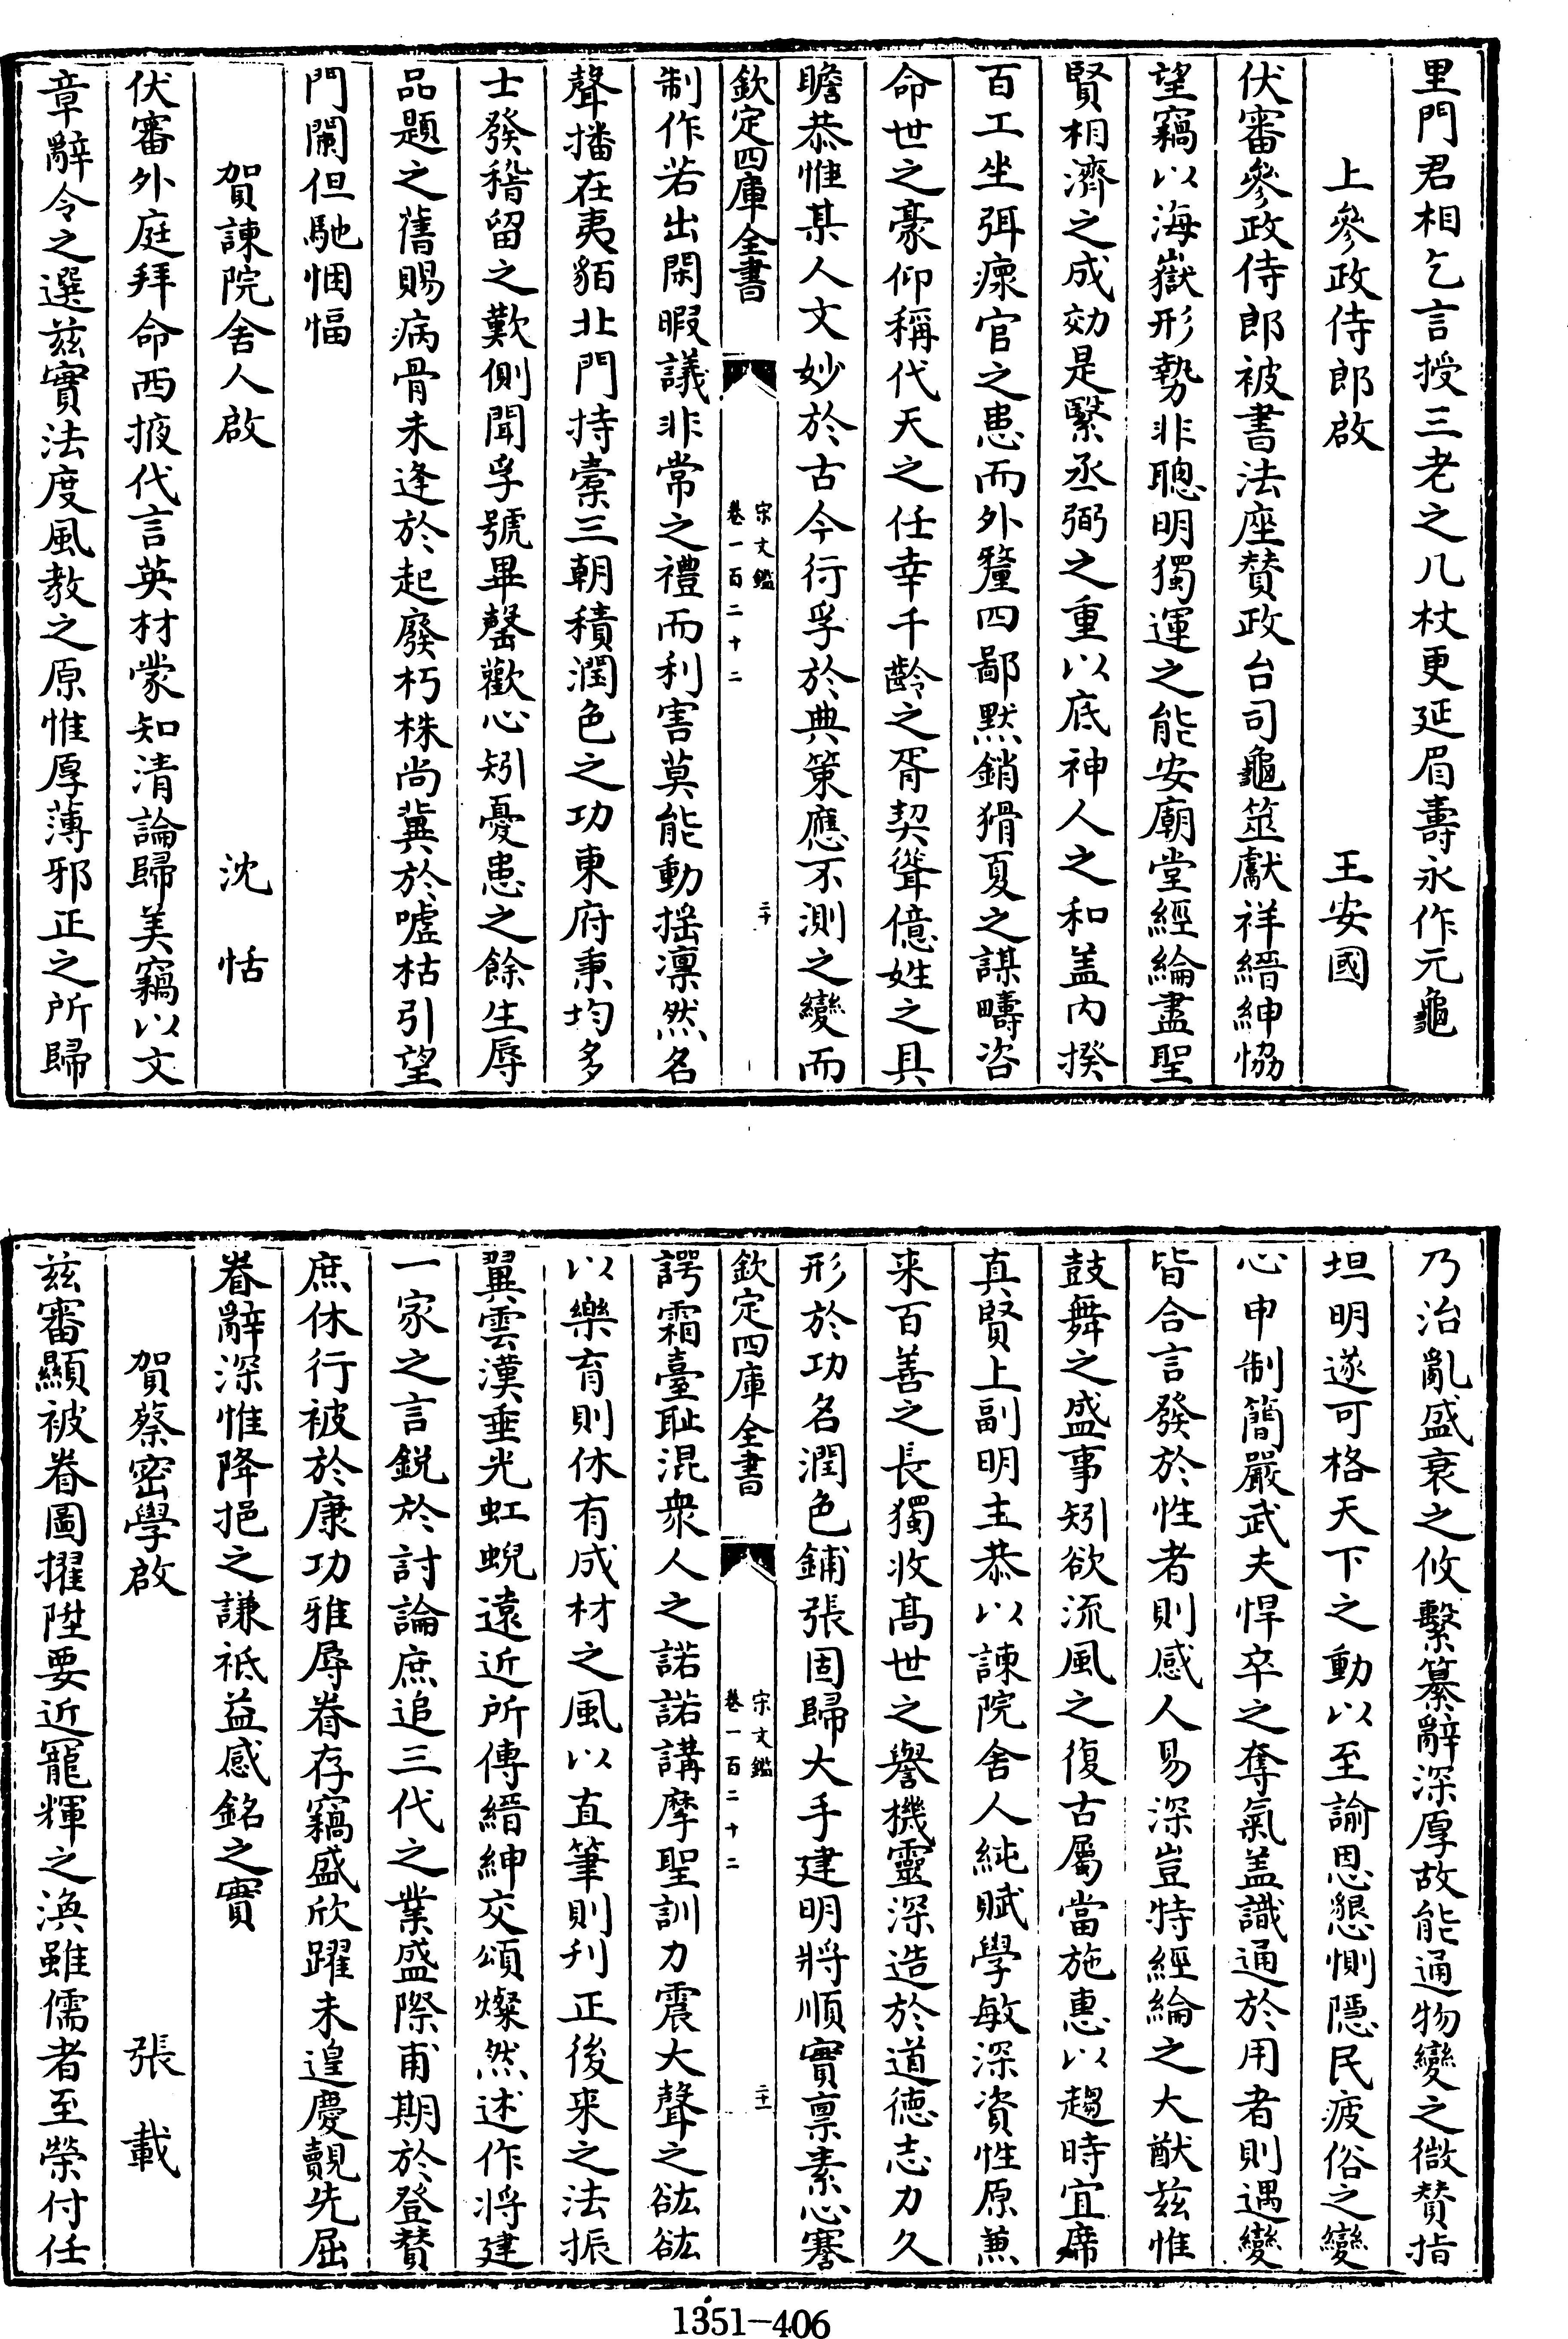 里門君相乞言授三老之几杖更延眉壽永作元龜
上參政侍郎啟 王安國
伏審參政侍郎被書法座贊政台司龜筮獻祥縉紳恊
望竊以海嶽形勢非聰明獨運之能安廟堂經綸盡聖
賢相濟之成効是繄丞弼之重以底神人之和盖内揆
百工坐弭瘝官之患而外釐四鄙默銷猾夏之謀疇咨
命世之豪仰稱代天之任幸千齡之胥契聳億姓之具
瞻恭惟某人文妙於古今行孚於典策應不測之變而
欽定四庫全書 宋文鑑 卷一百二十二 二十
制作若出閑暇議非常之禮而利害莫能動揺凛然名
聲播在夷貊北門持橐三朝積潤色之功東府秉均多
士發稽留之歎側聞孚號畢罄歡心矧憂患之餘生辱
品題之舊賜病骨未逢於起廢朽株尚冀於嘘枯引望
門闌但馳悃愊
賀諫院舍人啟 沈恬
伏審外庭拜命西掖代言英材蒙知清論歸美竊以文
章辭令之選兹實法度風教之原惟厚薄邪正之所歸
乃治亂盛衰之攸繫纂辭深厚故能通物變之微贊指
坦明遂可格天下之動以至諭恩懇惻隱民疲俗之變
心申制簡嚴武夫悍卒之奪氣盖識通於用者則遇變
皆合言發於性者則感人易深豈特經綸之大猷兹惟
鼓舞之盛事矧欲流風之復古屬當施惠以趨時宜席
真賢上副明主恭以諫院舍人純賦學敏深資性原蕙
来百善之長獨收髙世之譽機靈深造於道徳志力久
形於功名潤色鋪張固歸大手建明將順實禀素心謇
欽定四庫全書 宋文鑑 卷一百二十二 二十一
諤霜臺耻混衆人之諾諾講摩聖訓力震大聲之谹谹
以樂育則休有成材之風以直筆則刋正後来之法振
翼雲漢垂光虹蜺遠近所傳縉紳交頌燦然述作將建
一家之言鋭於討論庶追三代之業盛際甫期於登贊
庶休行被於康功雅辱眷存竊盛欣躍未遑慶覿先屈
眷辭深惟降挹之謙祗益感銘之實
賀蔡密學啟 張載
兹審顯被眷圖擢陞要近寵輝之渙雖儒者至榮付任
1351-406